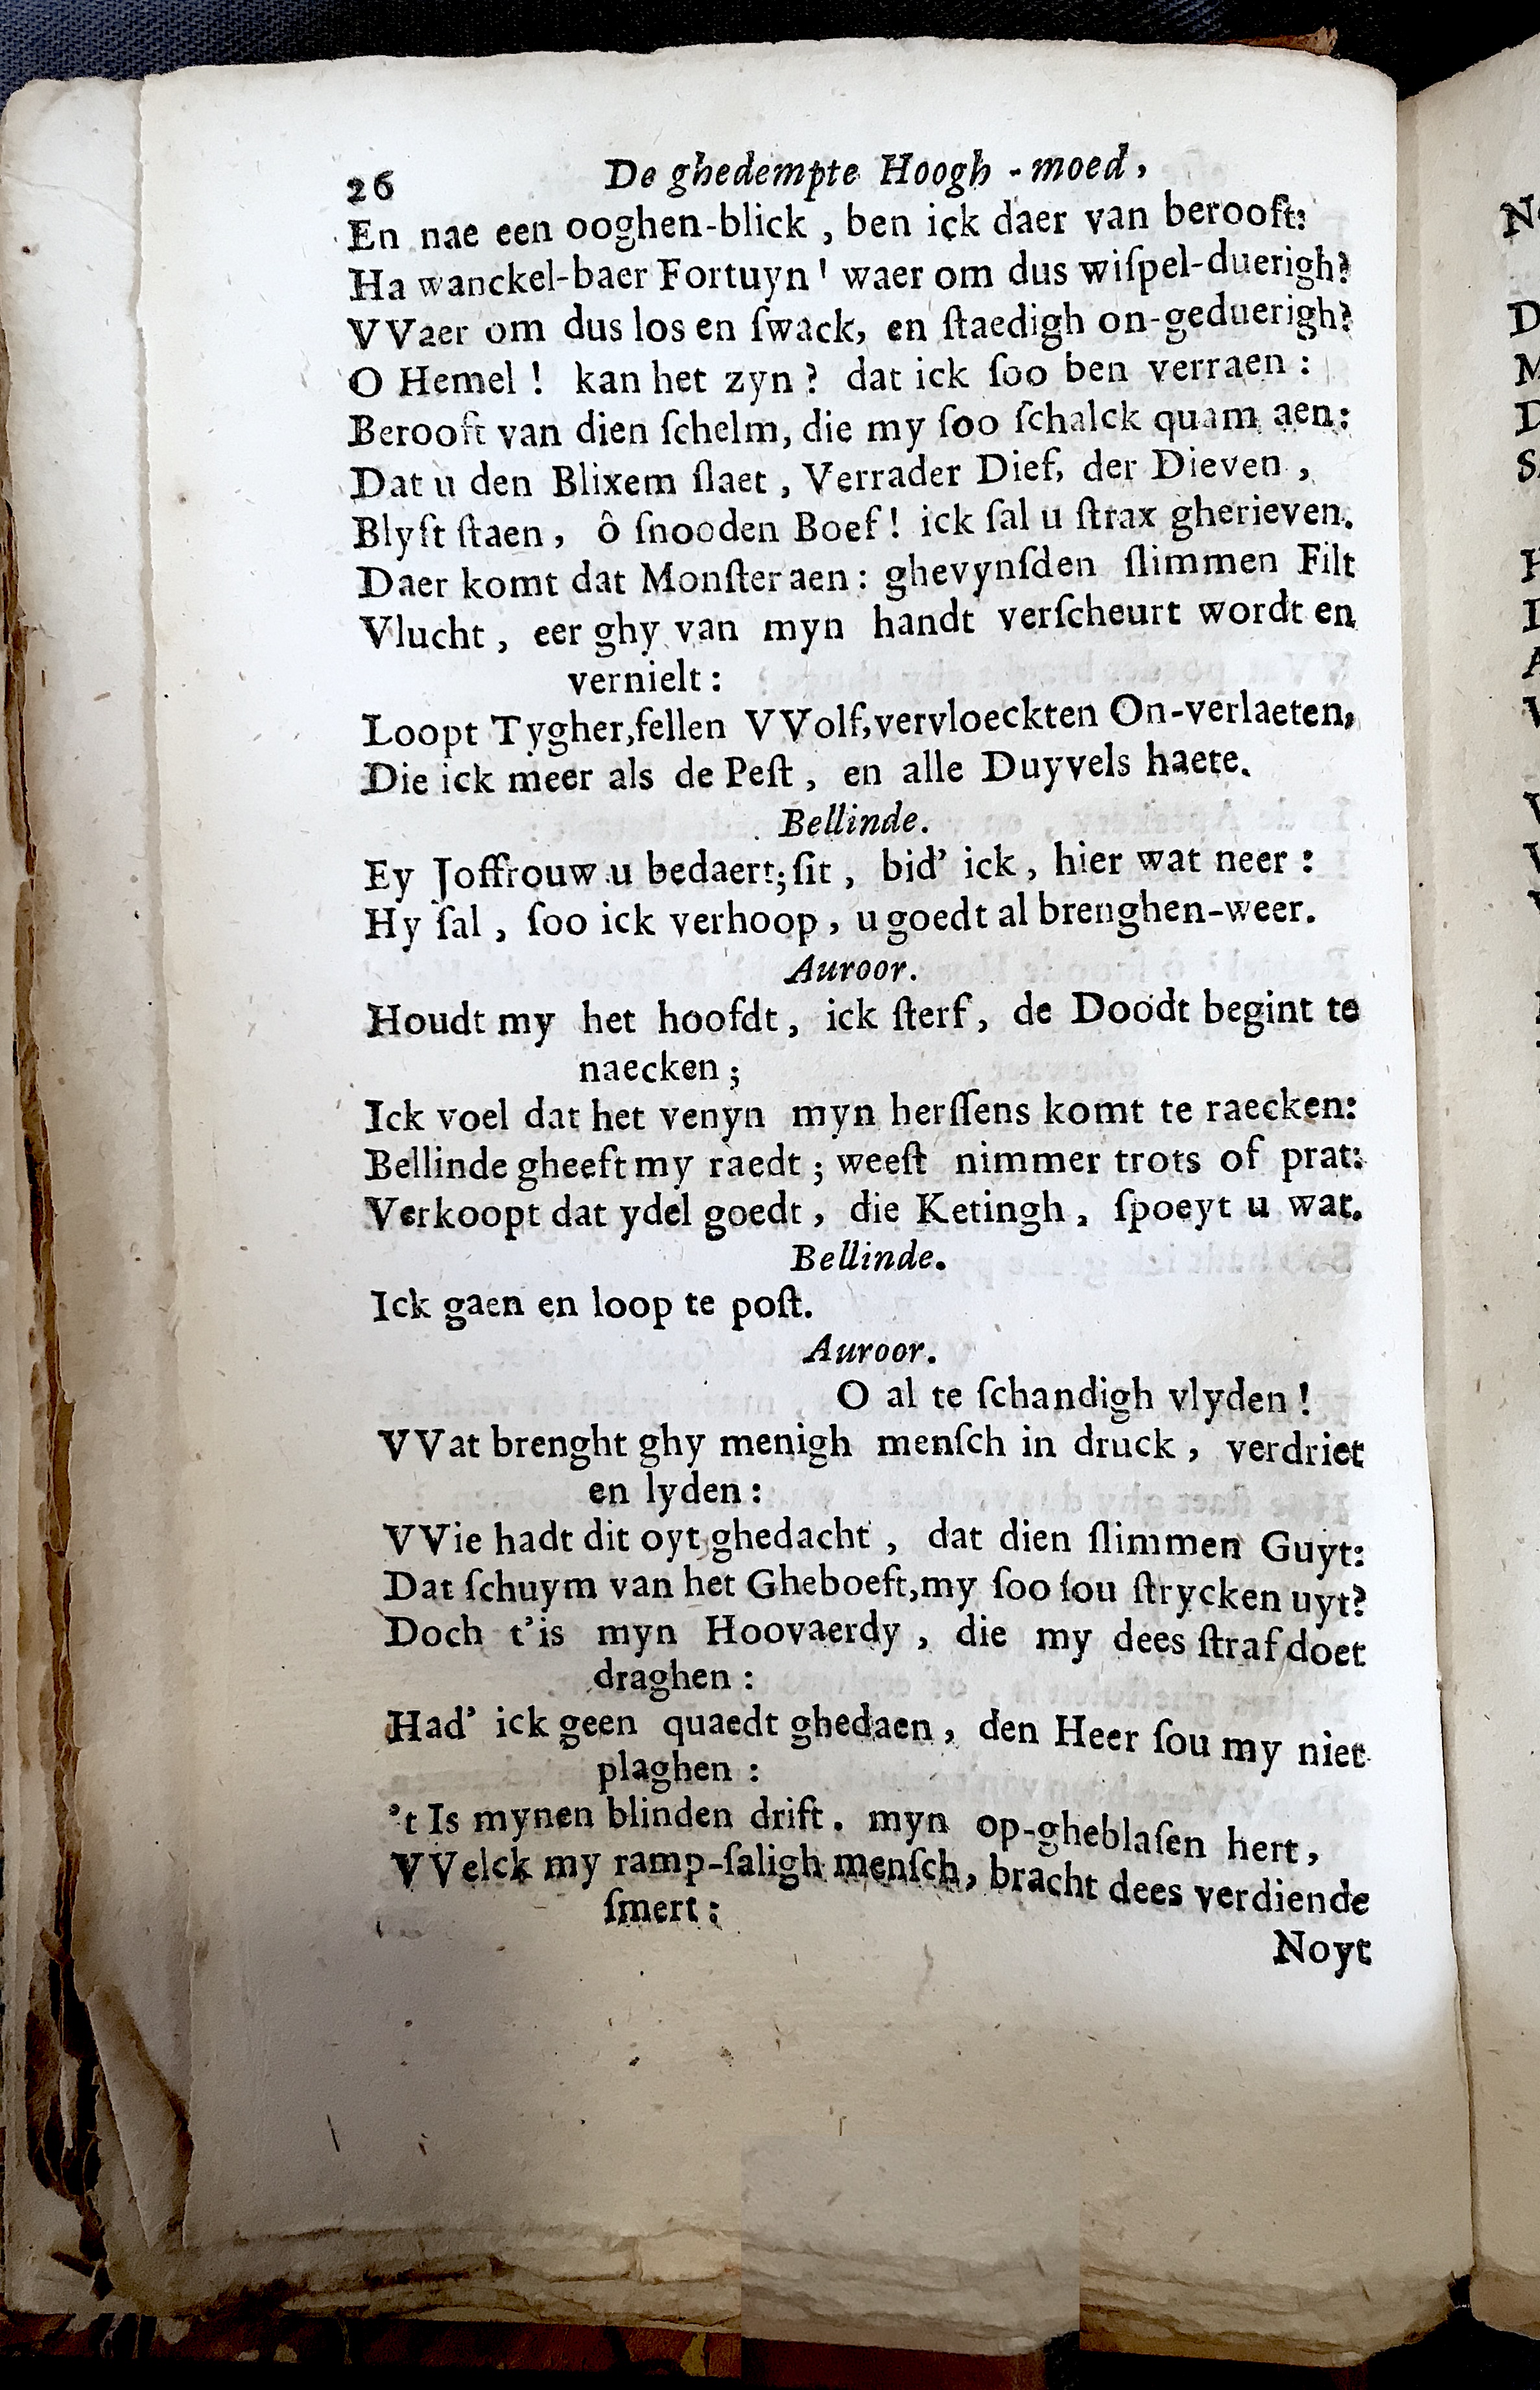 26 De ghedempte Hoogh-moed,
En nae een ooghen-blick, ben ick daer van berooft:
Ha wanckel-baer Fortuyn! waer om dus wiſpel-duerigh?
VVaer om dus los en ſwack, en ſtaedigh on-geduerigh?
O Hemel! kan het zyn? dat ick ſoo ben verraen:
Berooft van dien ſchelm, die my ſoo ſchalck quam aen:
Dat u den Blixem ſlaet, Verrader Dief, der Dieven,
Blyft ſtaen, ô ſnooden Boef! ick ſal u ſtrax gherieven.
Daer komt dat Monſter aen: ghevynſden ſlimmen Filt
Vlucht, eer ghy van myn handt verſcheurt wordt en
vernielt:
Loopt Tygher, fellen VVolf, vervloeckten On-verlaeten,
Die ick meer als de Peſt, en alle Duyvels haete.
Bellinde.
Ey Joffrouw u bedaert; ſit, bid' ick, hier wat neer:
Hy ſal, ſoo ick verhoop, u goedt al brenghen-weer.
Auroor.
Houdt my het hoofdt, ick ſterf, de Doodt begint te
naecken;
Ick voel dat het venyn myn herſſens komt te raecken:
Bellinde gheeft my raedt; weeſt nimmer trots of prat:
Verkoopt dat ydel goedt, die Ketingh, ſpoeyt u wat.
Bellinde.
Ick gaen en loop te poſt.
Auroor.
O al te ſchandigh vlyden!
VVat brenght ghy menigh menſch in druck, verdriet
en lyden:
VVie hadt dit oyt ghedacht, dat dien ſlimmen Guyt:
Dat ſchuym van het Gheboeft, my ſoo ſou ſtrycken uyt?
Doch t'is myn Hoovaerdy, die my dees ſtraf doet
draghen:
Had' ick geen quaedt ghedaen, den Heer ſou my niet
plaghen:
't Is mynen blinden drift. myn op-gheblaſen hert,
VVelck my ramp-ſaligh menſch, bracht dees verdiende
ſmert:
Noyt